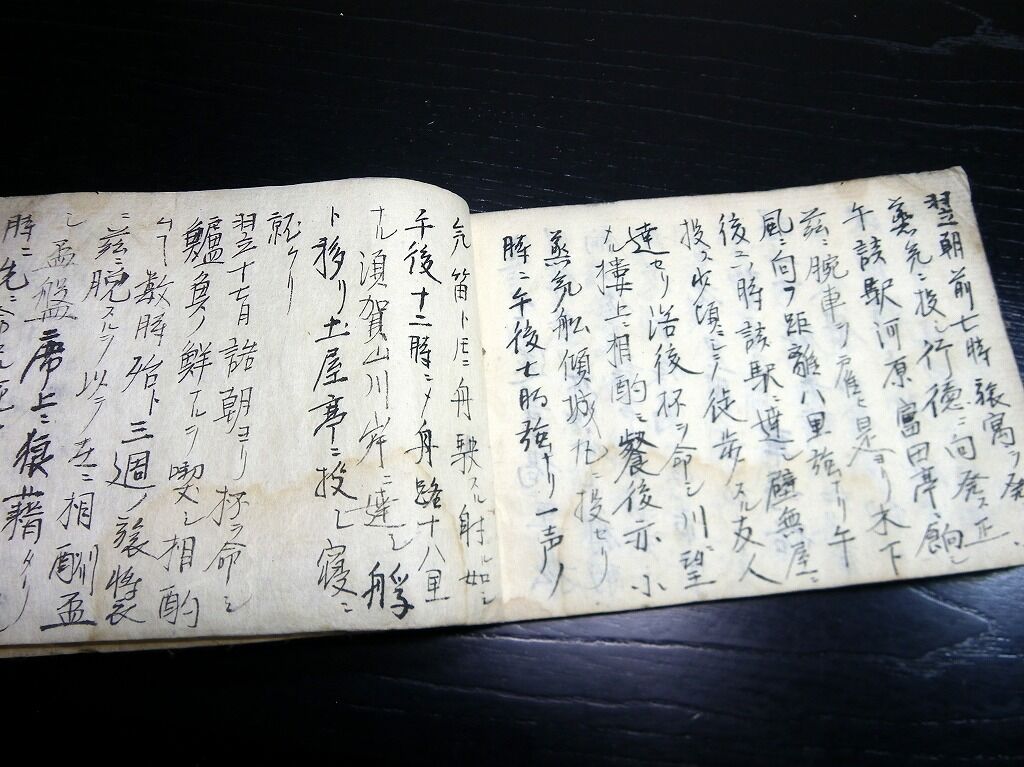 翌朝前七時旅寓ヲ発
蒸気ニ投シ行徳ニ向発ス正
午該駅河原富田亭ニ餉シ
茲ニ腕車ヲ雇ヒ是ヨリ木下
風ニ向フ距離八里強ナリ午
後二時該駅ニ達シ 無屋ニ
投ス 頃ニシテ徒歩スル友人
達セリ浴後杯ヲ命シ川ニ望
ナル楼上ニ相酌ミ餐後亦小
蒸気船傾城丸ニ投セリ
時ニ午後七時強ナリ一声ノ
気笛ト圧ニ舟駛スル射ル如シ
午後十二時ニシテ舟路十八里
ナル須賀山川岸ニ達シ艀
ト移リ土屋亭ニ投シ寝ニ
就ケリ
翌十七日詰朝ヨリ杯ヲ命シ
鱸魚ノ鮮ナルヲ喫シ相酌
コト数時殆ト三週ノ旅装
ニ茲ニ脱スルヲ以テ 相酬盃
シ盃盤席上ニ狼藉タリ
時ニ